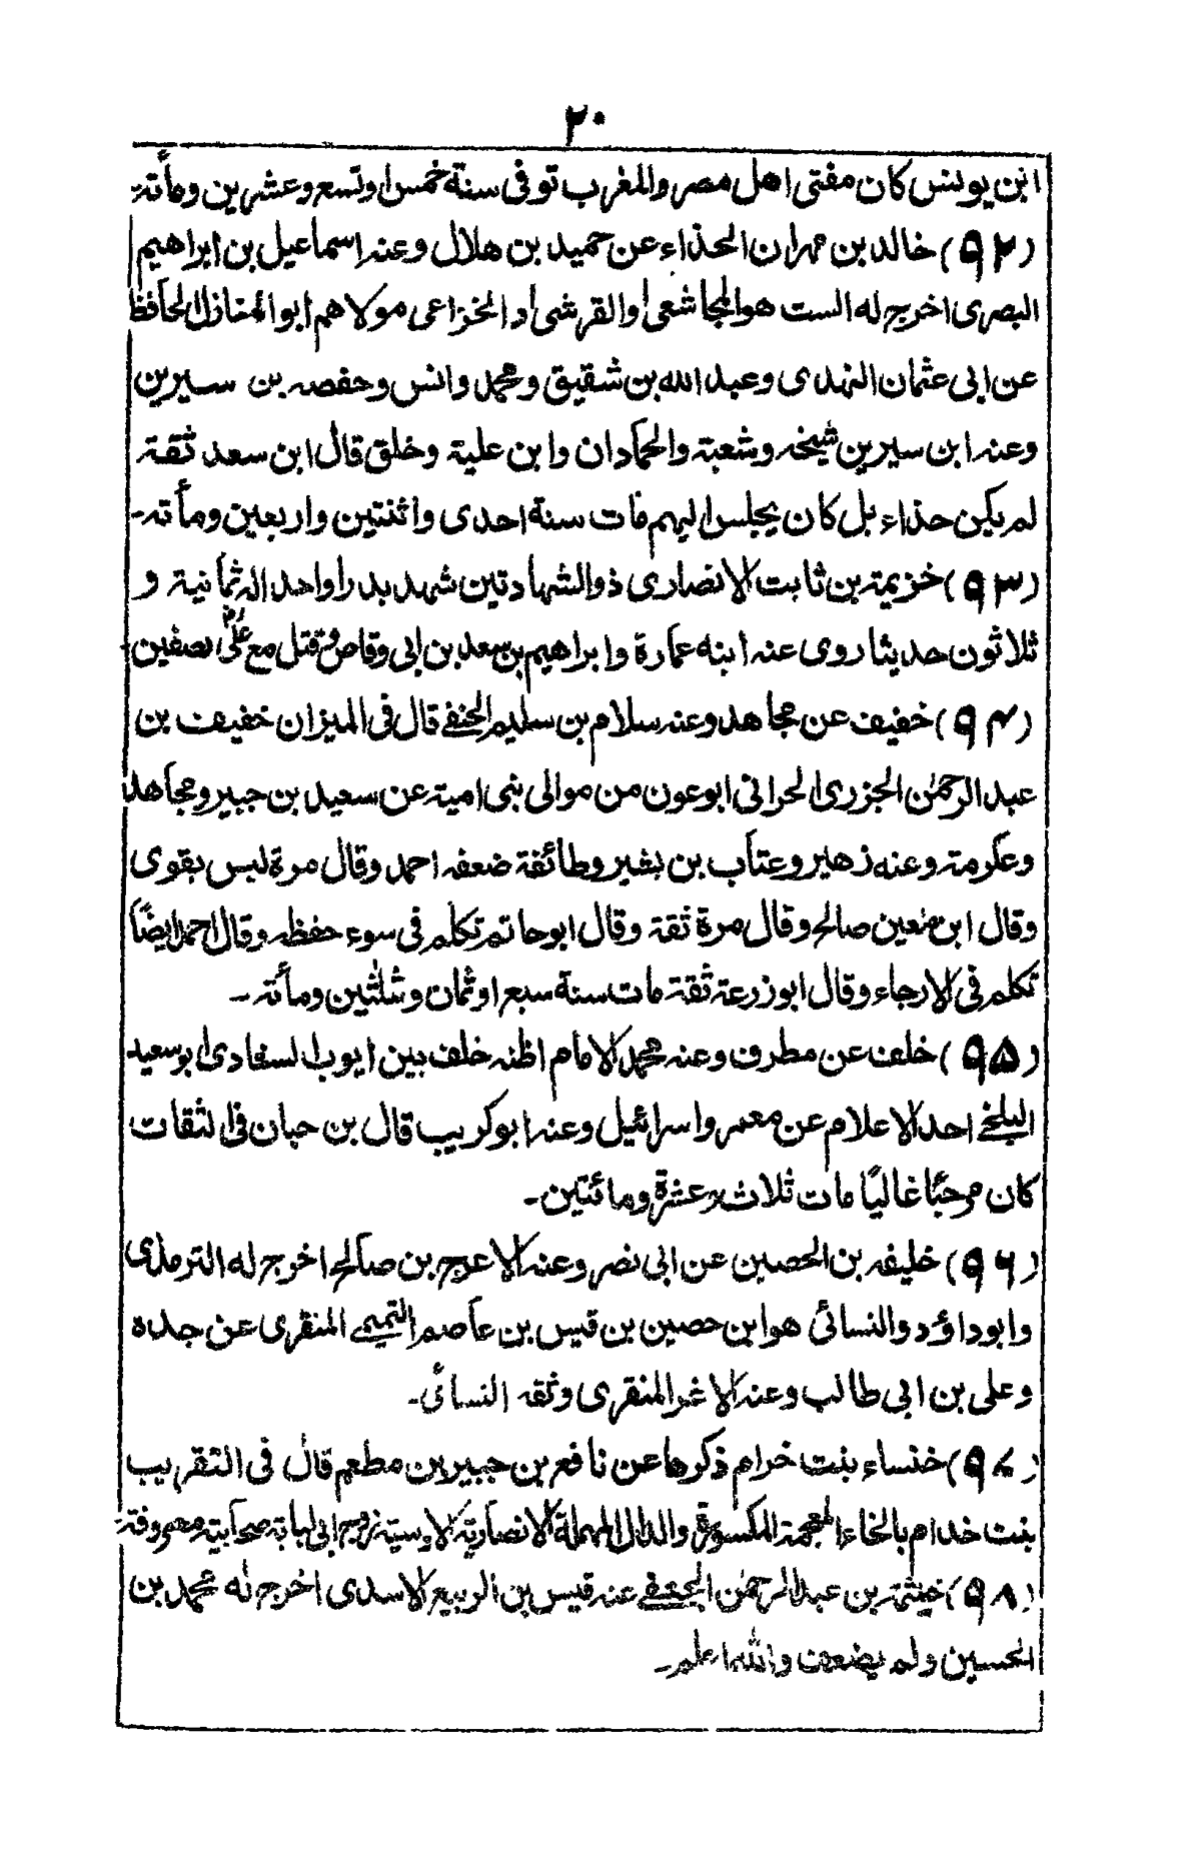 ٢٠
ابن يونس كان مفتى اهل مصر والمغرب توفى سنة خمس او تسع وعشرين ومأته
(٩٢) خالد بن مهران الحذاء عن حميد بن هلال وعنه اسماعيل بن ابراهيم
البصرى اخرج له الست هو المجاشعى او القرشى او الخزاعى مولاهم ابو المنازل الحافظ
عن ابى عثمان النهدى وعبد الله بن شقيق ومحمد وانس وحفصه بن سيرين
وعنه ابن سيرين شيخه وشعبة والحمادان وابن علية وخلق قال ابن سعد ثقة
لم يكن حذاء بل كان يجلس اليهم مات سنة احدى واثنتين واربعين ومأته-
(٩٣) خزيمة بن ثابت الانصارى ذو الشهادتين شهد بدرا واحدا له ثمانية و
ثلاثون حديثا روى عنه ابنه عمارة وابراهيم بن سعد بن ابى وقاص وقتل مع علىؓ بصفين
(٩٤) خفيف عن مجاهد وعنه سلام بن سليم الحنفے قال فى الميزان خفيف بن
عبد الرحمٰن الجزرى الحرانى ابو عون من موالى بنى امية عن سعيد بن جبير ومجاهد
وعكرمة وعنه زهير وعتاب بن بشير وطائفة ضعفه احمد وقال مرة ليس بقوى
وقال ابن معين صالح وقال مرة ثقة وقال ابو حاتم تكلم فى سوء حفظه وقال احمد ايضًا
تكلم فى الارجاء وقال ابو زرعة ثقة مات سنة سبع او ثمان وثلٰثين ومأته-
(٩٥) خلف عن مطرف وعنه محمد الامام اظنه خلف بين ايوب السفادى ابو سعيد
البلخے احد الاعلام عن معمر واسرائيل وعنه ابو كريب قال بن حبان فى الثقات
كان مرجئًا غاليًا مات ثلاث عشرة ومائتين-
(٩٦) خليفه بن الحصين عن ابى نصر وعنه الاعرج بن صالح اخرج له الترمذى
وابو داؤد والنسائى هو ابن حصين بن قيس بن عاصم التميمے المنقرى عن جده
وعلى بن ابى طالب وعنه الاغر المنقرى وثقه النسائى-
(٩٧) خنساء بنت خرام ذكرها عن نافع بن جبير بن مطعم قال فى التقريب
بنت خدام بالخاء المعجمة المكسورة والدال المهملة الانصارية الاوسية زوج ابى لبابة صحابية معروفة
(٩٨) خيثمة بن عبد الرحمٰن الجعفے عنه قيس بن الربيع الاسدى اخرج له محمد بن
الحسين ولم يضعف والله اعلم-